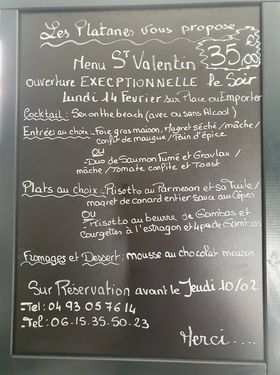 Les Platanes vous propose
Menu St Valentin 35,00
ouverture EXECPTIONNELLE le Soir
Lundi 14 Fevrier sur Place ou Emporter
Cocktail : Sex on the beach (avec ou sans Alcool)
Entrées au choix : Foie gras maison, Magret séché / mâche /
confit de mangue / Pain d'épice
ou
- Duo de Saumon Fumé et Gravlax /
mâche / Tomate confite et Toast
Plats au choix : Risotto au Parmesan et sa Tuile /
magret de canard entier sauce aux Cèpes
Ou
Risotto au beurre de Gambas et
Courgettes à l'estragon et 4 pcs de Gambas
Fromages et Dessert : mousse au chocolat maison
Sur Réservation avant le Jeudi 10/02
-Tel : 04 93 05 76 14
-Tel : 06.15.35.50.23
Merci....